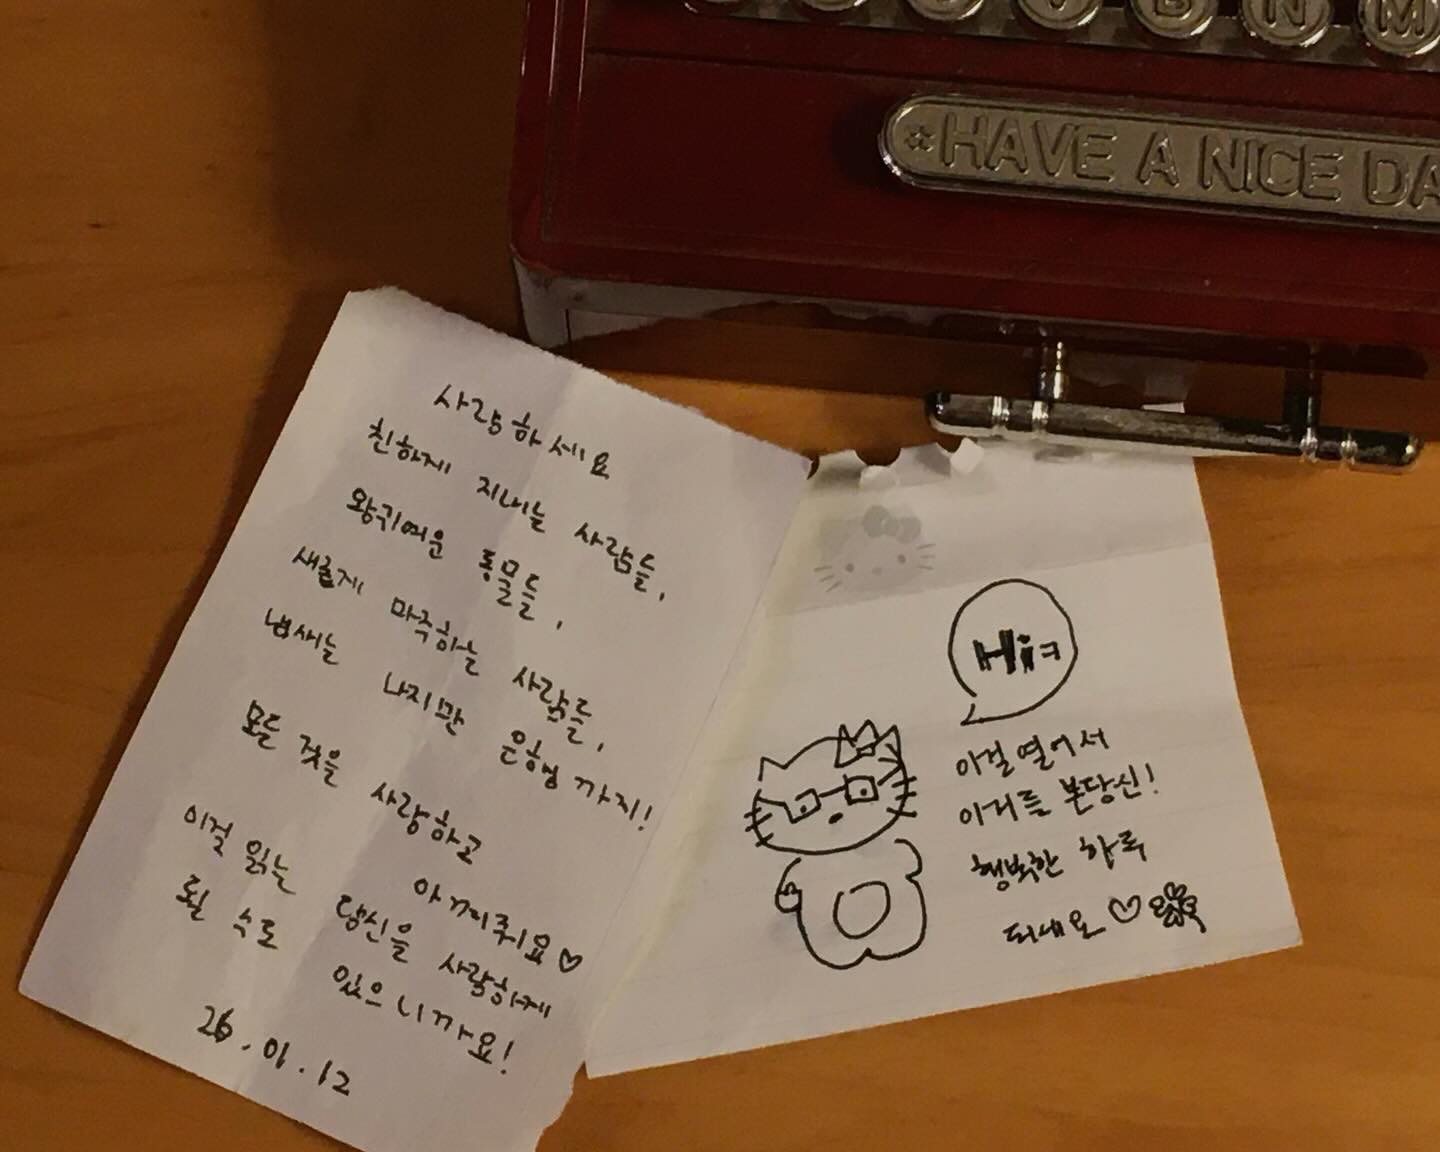 B N M
HAVE A NICE DA
사랑하세요
친하게 지내는 사람들,
왕귀여운 동물들,
새롭게 마주하는 사람들,
냄새는 나지만 은행까지!
모든 것을 사랑하고
아껴줘요♡
이걸 읽는 당신을 사랑하게
될 수도 있으니까요!
26.01.12
Hiㅋ
이걸 열어서
이거를 본당신!
행복한 하루
되세요♡